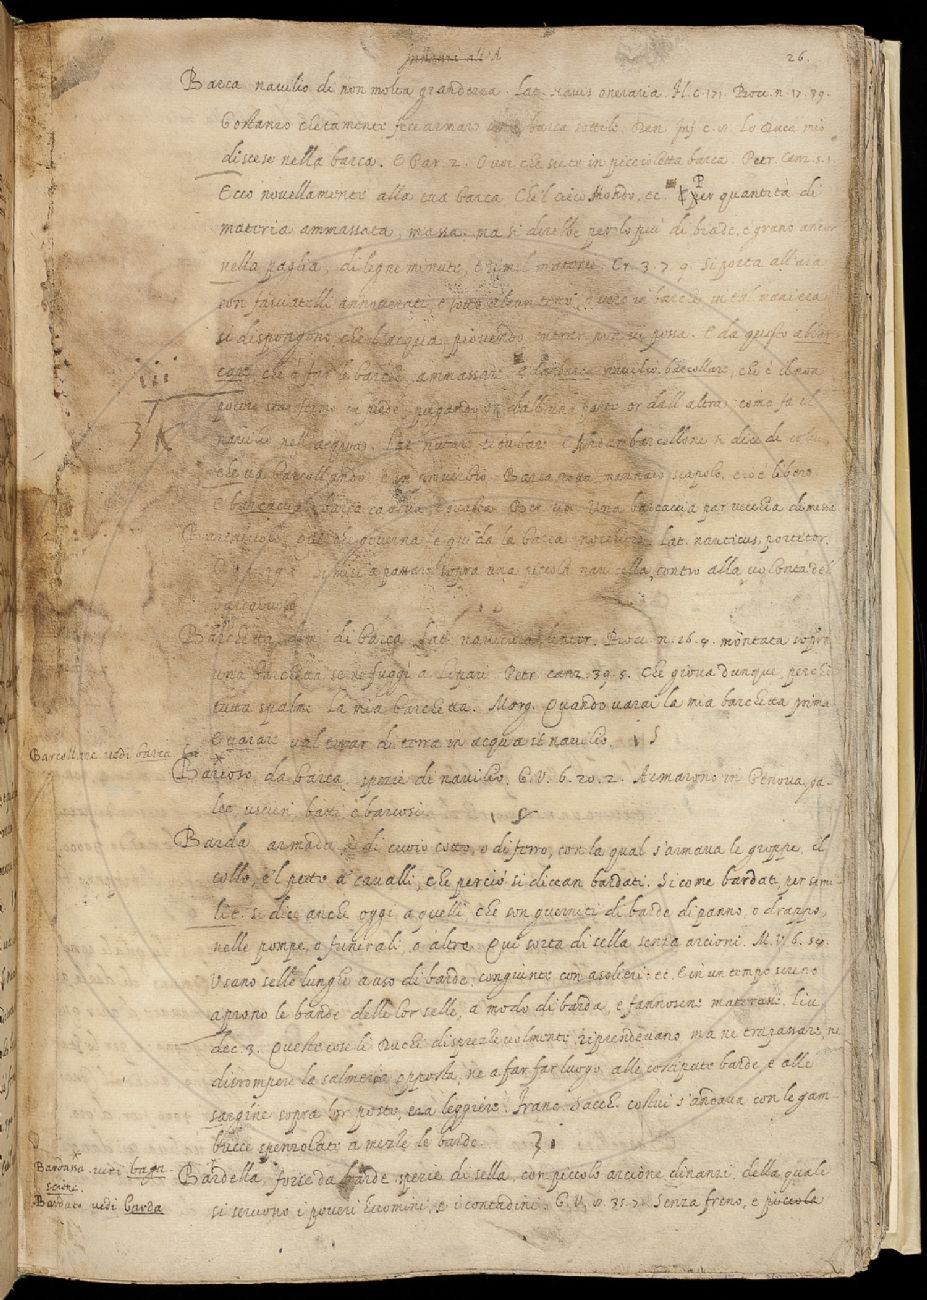 26.
Barca navilio di non molta grandezza. Lat. navis oneraria. N. c. 171. Bocc. n. 17. 39.
Gostanzo chetamente fece armare una barca sottile. Dan. Inf. c. 8. Lo Duca mio
discese nella barca. E Par. 2. O voi che siete in piccioletta barca. Petr. Canz. 5. 1.
Ecco novellamente alla tua barca Ch'l cieco Mondo, ec. Per quantità di
materia ammassata, massa. ma si direbbe per lo più di biade, e grano ancor
nella paglia, di legne minute, e simil materie. Cr. 3. 7. 9. Si poeta all'aia
con farucelli annoverati, e sotto alcun tetto, ovvero in barche in tal maniera
si dispongono, che l'acqua piovendo entrar non vi possa. E da questo abbar
care che è far le barche, ammassare e da barca navilio. barcollare, che è il non
potere star fermo in piede, piegando or dall'una parte or dall'altra, come fa il
navilio nell'acqua. Lat. nutare, titubare. E Andar barcollone si dice di colui,
che va barcollando e in proverbio Barca rotta, marinaio scapolo, cioè libero
E barcaccia barca cattiva, e vecchia Una barcaccia par vecchia dimessa
Barcaiuolo, quel che governa, e guida la barca, nocchiero. Lat. nauticus, portitor.
a passare sopra una piccola navicella, contro alla volontà del
barcaiuolo
Barchetta, dim. di barca. Lat. navicula, linter. Bocc. n. 16. 4. montata sopra
una barchetta se ne fuggì a Lipari. Petr. canz. 39. 5. Che giova dunque, perche
tutta spalme La mia barchetta. Morg. Quando varai la mia barchetta prima
E varare val tirar di terra in acqua il navilio.
Barcollare vedi barca
Barcoso, da barca, spezie di navilio. G. V. 6. 20. 2. Armarono in Genova, ga-
lee, uscieri, batti, e barcosi.
Barda armadura di cuoio cotto, o di ferro, con la qual s'armava le groppe, il
collo, e 'l petto a' cavalli, che perciò si dicean bardati. Si come bardat. per simi-
lit. si dice anche oggi a quelli, che son guerniti di barde di panno, o drappo,
nelle pompe, o funerali, o altre. Qui sorta di sella senza arcioni. M. V. 6. 54.
Usano selle lunghe a uso di barde, congiunte con asolieri. ec. E in un tempo sereno
aprono le bande delle lor selle, a modo di barda, e fannosene materasse. Liv.
dec. 3. Queste cose li Duchi dispregevolmente riprendevano, ma ne trapassare, ne
dirompere la salmeria opposta, ne a far far luogo alle costipate barde, e alle
sargine sopra lor poste era leggiere. Franc. Sacch. costui s'andava con le gam-
bucce spenzolate a mezze le barde.
Bardassa. vedi baga-
scione.
Bardato vedi barda
Bardella, forse da barde spezie di sella, con piccolo arcione dinanzi, della quali
si servono i poveri huomini, e i contadini. G. V. 8. 35. 7. Senza freno, e piccola